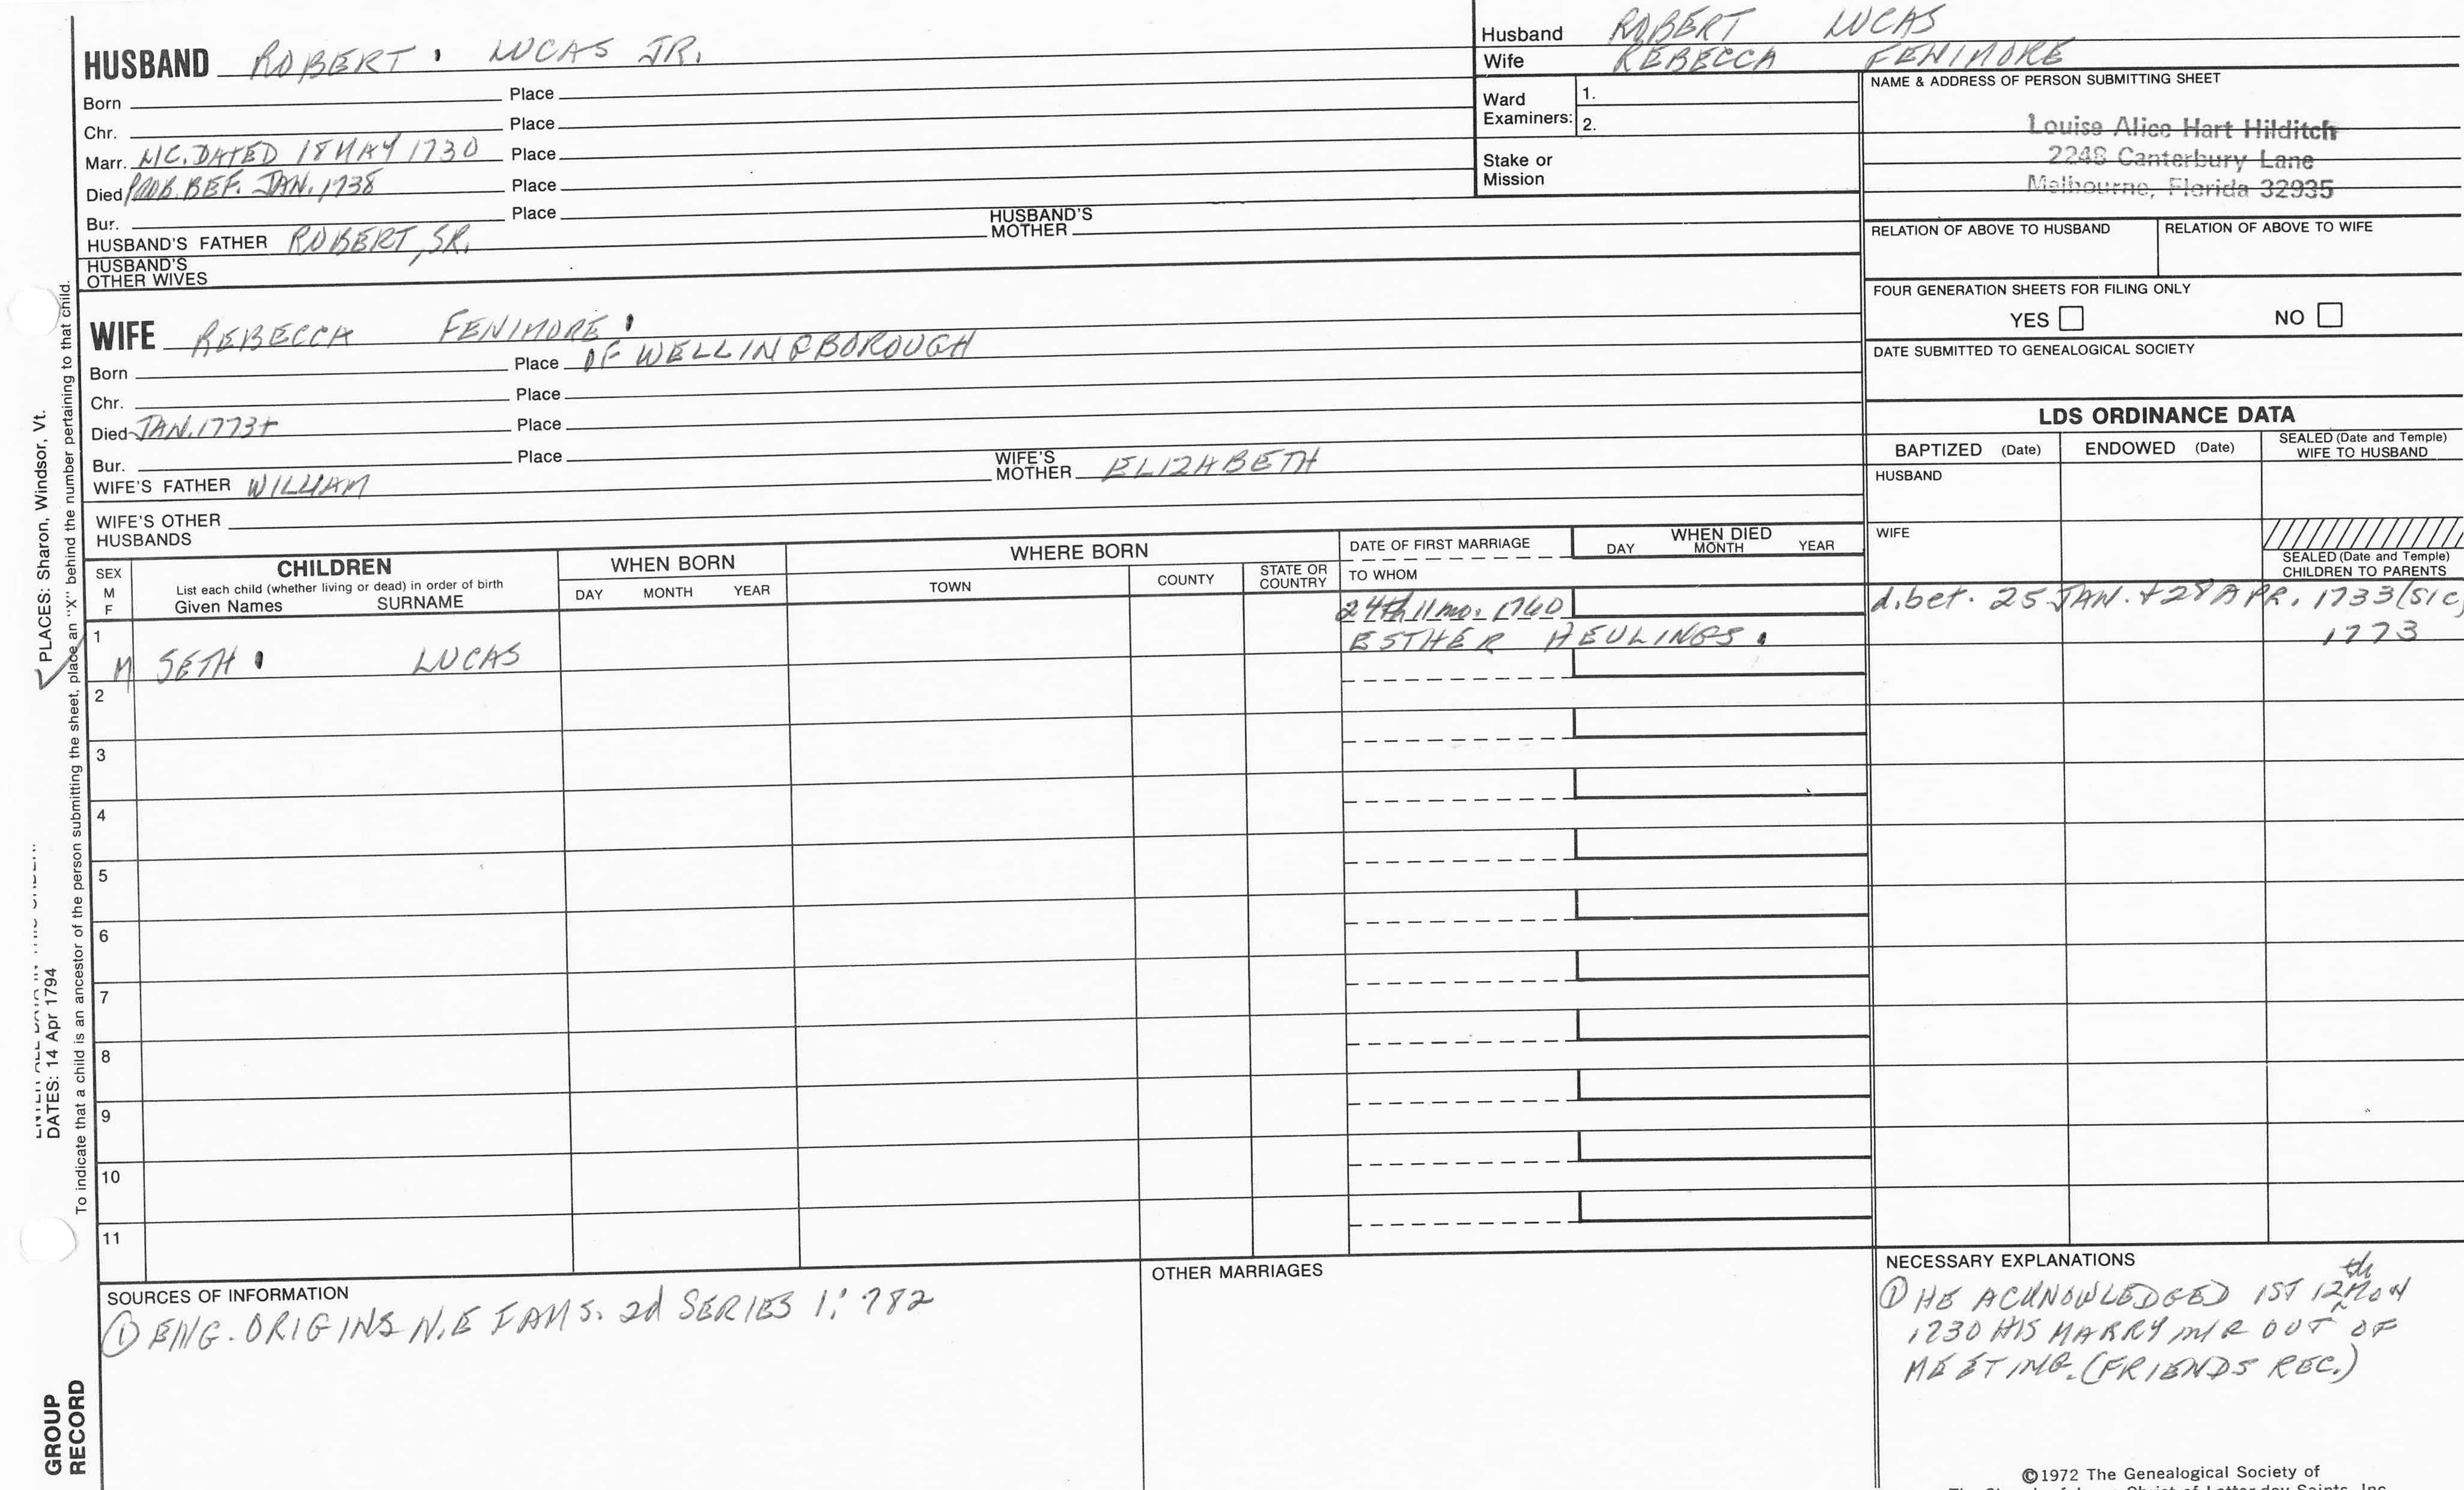 HUSBAND ROBERT LUCAS JR.
Born Place
Chr. Place
Marr. LIC. DATED 18 MAY 1730 Place
Died PROB. BEF. JAN. 1738 Place
Bur. Place
HUSBAND'S FATHER ROBERT, SR. HUSBAND'S MOTHER
HUSBAND'S OTHER WIVES
WIFE REBECCA FENIMORE
Born Place OF WELLINGBOROUGH
Chr. Place
Died JAN. 1773+ Place
Bur. Place
WIFE'S FATHER WILLIAM WIFE'S MOTHER ELIZABETH
WIFE'S OTHER HUSBANDS
Husband ROBERT LUCAS
Wife REBECCA FENIMORE
Ward Examiners: 1.
2.
Stake or Mission
NAME & ADDRESS OF PERSON SUBMITTING SHEET
Louise Alice Hart Hilditch
2248 Canterbury Lane
Melbourne, Florida 32935
RELATION OF ABOVE TO HUSBAND RELATION OF ABOVE TO WIFE
FOUR GENERATION SHEETS FOR FILING ONLY
YES NO
DATE SUBMITTED TO GENEALOGICAL SOCIETY
LDS ORDINANCE DATA
BAPTIZED (Date) ENDOWED (Date) SEALED (Date and Temple) WIFE TO HUSBAND
HUSBAND
WIFE
SEALED (Date and Temple) CHILDREN TO PARENTS
SEX M F
CHILDREN
List each child (whether living or dead) in order of birth
Given Names SURNAME
WHEN BORN
DAY MONTH YEAR
WHERE BORN
TOWN COUNTY STATE OR COUNTRY
DATE OF FIRST MARRIAGE
TO WHOM
WHEN DIED
DAY MONTH YEAR
1 M SETH LUCAS
24th 11 mo. 1760
ESTHER HEULINGS
d. bet. 25 JAN. + 28 APR. 1733 (SIC)
1773
2
3
4
5
6
7
8
9
10
11
SOURCES OF INFORMATION
① ENG. ORIGINS N.E FAMS. 2d SERIES 1:782
OTHER MARRIAGES
NECESSARY EXPLANATIONS
① HE ACKNOWLEDGED 1ST 12th MON
1730 HIS MARRY OUT OF
MEETING. (FRIENDS REC.)
©1972 The Genealogical Society of
PLACES: Sharon, Windsor, Vt.
DATES: 14 Apr 1794
To indicate that a child is an ancestor of the person submitting the sheet, place an "X" behind the number pertaining to that child.
GROUP
RECORD